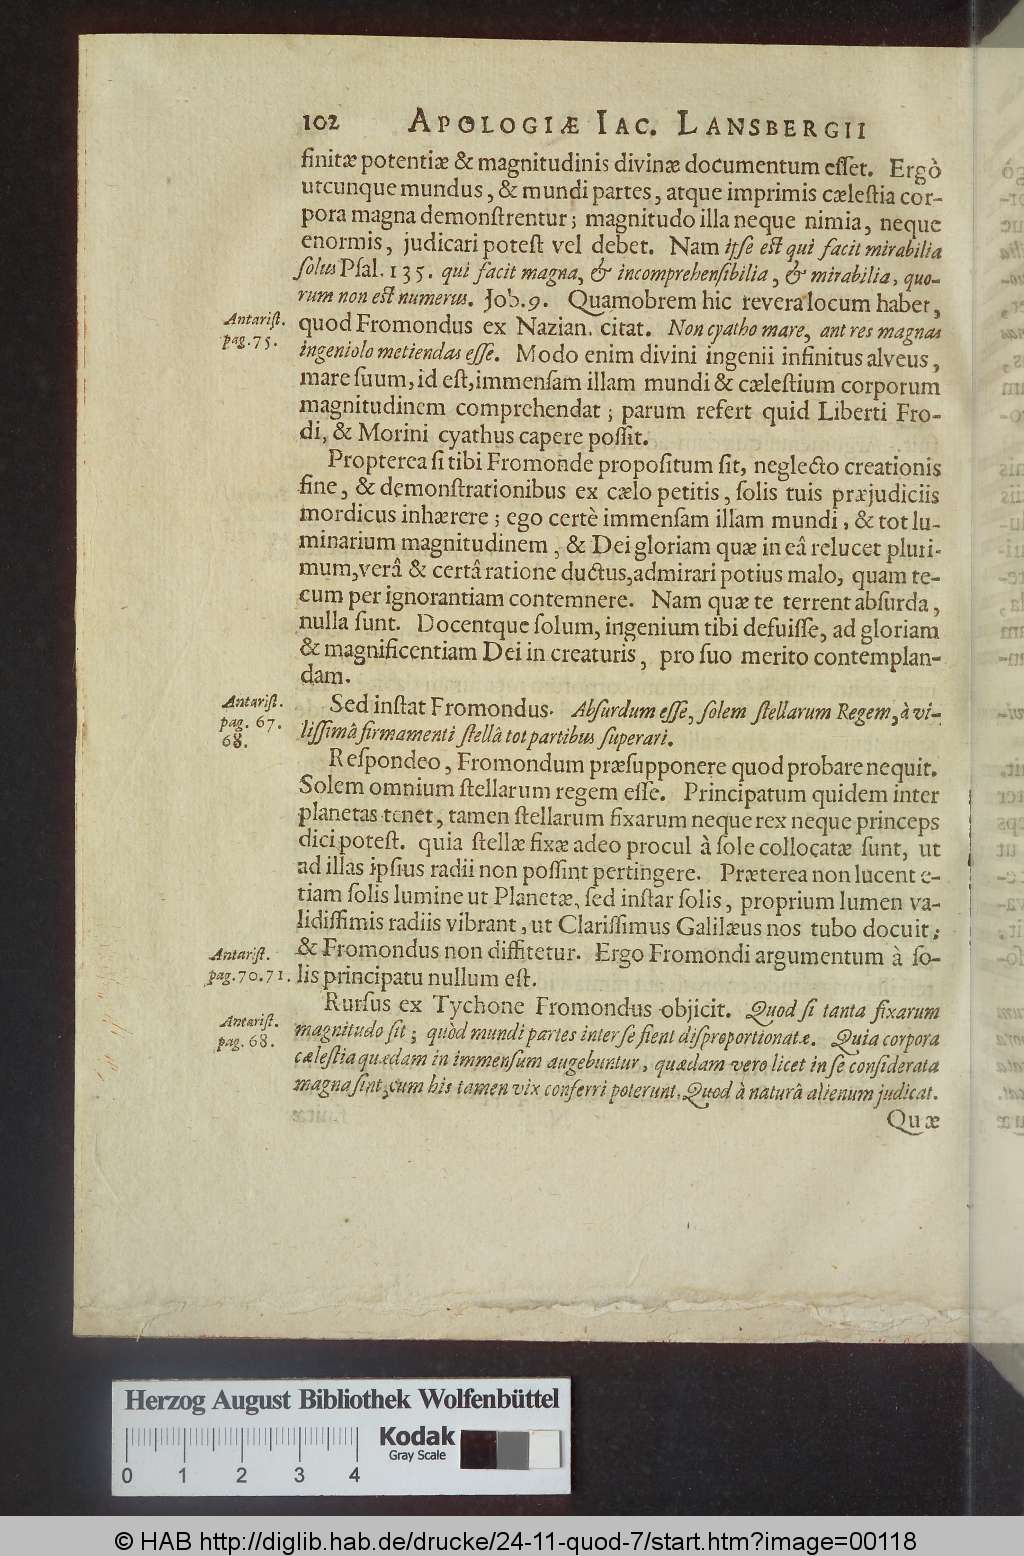 102 APOLOGIÆ IAC. LANSBERGII
finitæ potentiæ & magnitudinis divinæ documentum eſſet. Ergò
utcunque mundus, & mundi partes, atque imprimis cæleſtia cor-
pora magna demonſtrentur; magnitudo illa neque nimia, neque
enormis, judicari poteſt vel debet. Nam ipſe eſt qui facit mirabilia
ſolus Pſal. 135. qui facit magna, & incomprehenſibilia, & mirabilia, quo-
rum non eſt numerus. Job. 9. Quamobrem hic revera locum haber,
Antariſt.
pag. 75.
quod Fromondus ex Nazian. citat. Non cyatho mare, ant res magnas
ingeniolo metiendas eſſe. Modo enim divini ingenii infinitus alveus,
mare ſuum, id eſt, immenſam illam mundi & cæleſtium corporum
magnitudinem comprehendat; parum refert quid Liberti Fro-
di, & Morini cyathus capere poſſit.
Propterea ſi tibi Fromonde propoſitum ſit, neglecto creationis
fine, & demonſtrationibus ex cælo petitis, ſolis tuis præjudiciis
mordicus inhærere; ego certè immenſam illam mundi, & tot lu-
minarium magnitudinem, & Dei gloriam quæ in eâ relucet pluri-
mum, verâ & certâ ratione ductus, admirari potius malo, quam te-
cum per ignorantiam contemnere. Nam quæ te terrent abſurda,
nulla ſunt. Docentque ſolum, ingenium tibi defuiſſe, ad gloriam
& magnificentiam Dei in creaturis, pro ſuo merito contemplan-
dam.
Antariſt.
pag. 67.
68.
Sed inſtat Fromondus. Abſurdum eſſe, ſolem ſtellarum Regem, à vi-
liſſimâ firmamenti ſtellâ tot partibus ſuperari.
Reſpondeo, Fromondum præſupponere quod probare nequit.
Solem omnium ſtellarum regem eſſe. Principatum quidem inter
planetas tenet, tamen ſtellarum fixarum neque rex neque princeps
dici poteſt. quia ſtellæ fixæ adeo procul à ſole collocatæ ſunt, ut
ad illas ipſius radii non poſſint pertingere. Præterea non lucent e-
tiam ſolis lumine ut Planetæ, ſed inſtar ſolis, proprium lumen va-
lidiſſimis radiis vibrant, ut Clariſſimus Galilæus nos tubo docuit;
Antariſt.
pag. 70. 71.
& Fromondus non diffitetur. Ergo Fromondi argumentum à ſo-
lis principatu nullum eſt.
Antariſt.
pag. 68.
Rurſus ex Tychone Fromondus objicit. Quod ſi tanta fixarum
magnitudo ſit; quòd mundi partes inter ſe fient diſproportionatæ. Quia corpora
cæleſtia quædam in immenſum augebuntur, quædam vero licet in ſe conſiderata
magna ſint, cum his tamen vix conferri poterunt, Quod à naturâ alienum judicat.
Quæ
Herzog August Bibliothek Wolfenbüttel
Kodak
Gray Scale
0 1 2 3 4
© HAB http://diglib.hab.de/drucke/24-11-quod-7/start.htm?image=00118